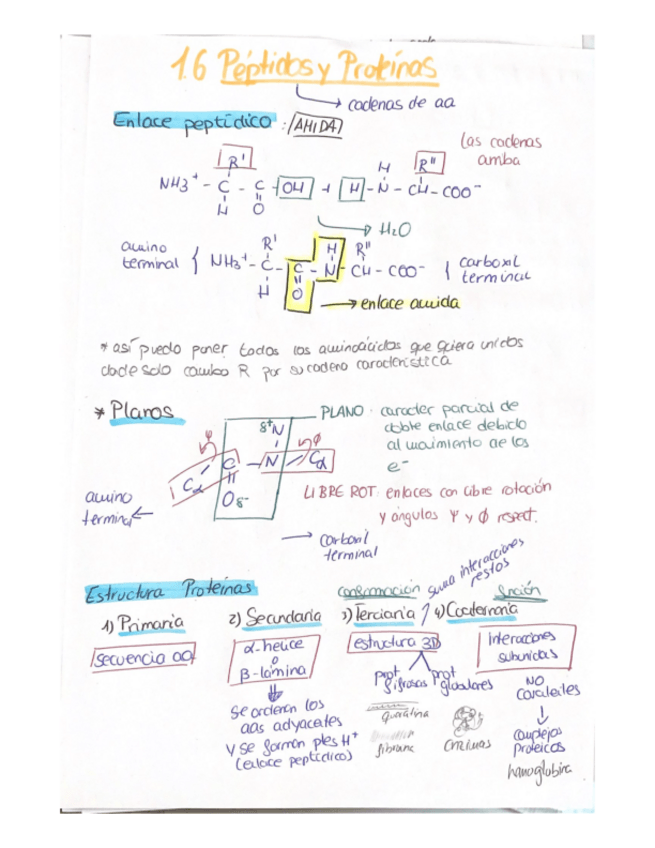 1.6 Péptidos y Proteínas
cadenas de aa
Enlace peptídico: AMIDA
las cadenas
cambia
R' R"
H
NH3+ - C - C - OH + H - N - CH - COO-
H O
H2O
amino
terminal
R' H R"
NH3+ - C - C - N - CH - COO-
H O
carboxil
terminal
enlace amida
* así puedo poner todos los aminoácidos que quiera unidos
dode solo cambia R por su cadena característica
* Planos
PLANO: caracter parcial de
doble enlace debido
al movimiento de los
e-
δ+N
Ψ φ
Cα C - N - Cα
O δ-
LIBRE ROT: enlaces con libre rotación
y ángulos Ψ y φ respect.
amino
terminal
carboxil
terminal
Estructura Proteínas
conformación suma interacciones
restos
función
1) Primaria
secuencia aa
2) Secundaria
α-helice
o
β-lamina
se ordenan los
aas adyacetes
y se forman ptes H+
(enlace peptídico)
3) Terciaria
estructura 3D
prot fibrosas
prot globulares
queratina
fibroina
enzimas
4) Cuaternaria
Interacciones
subunidas
NO
covaletes
complejos
proteicos
hemoglobina